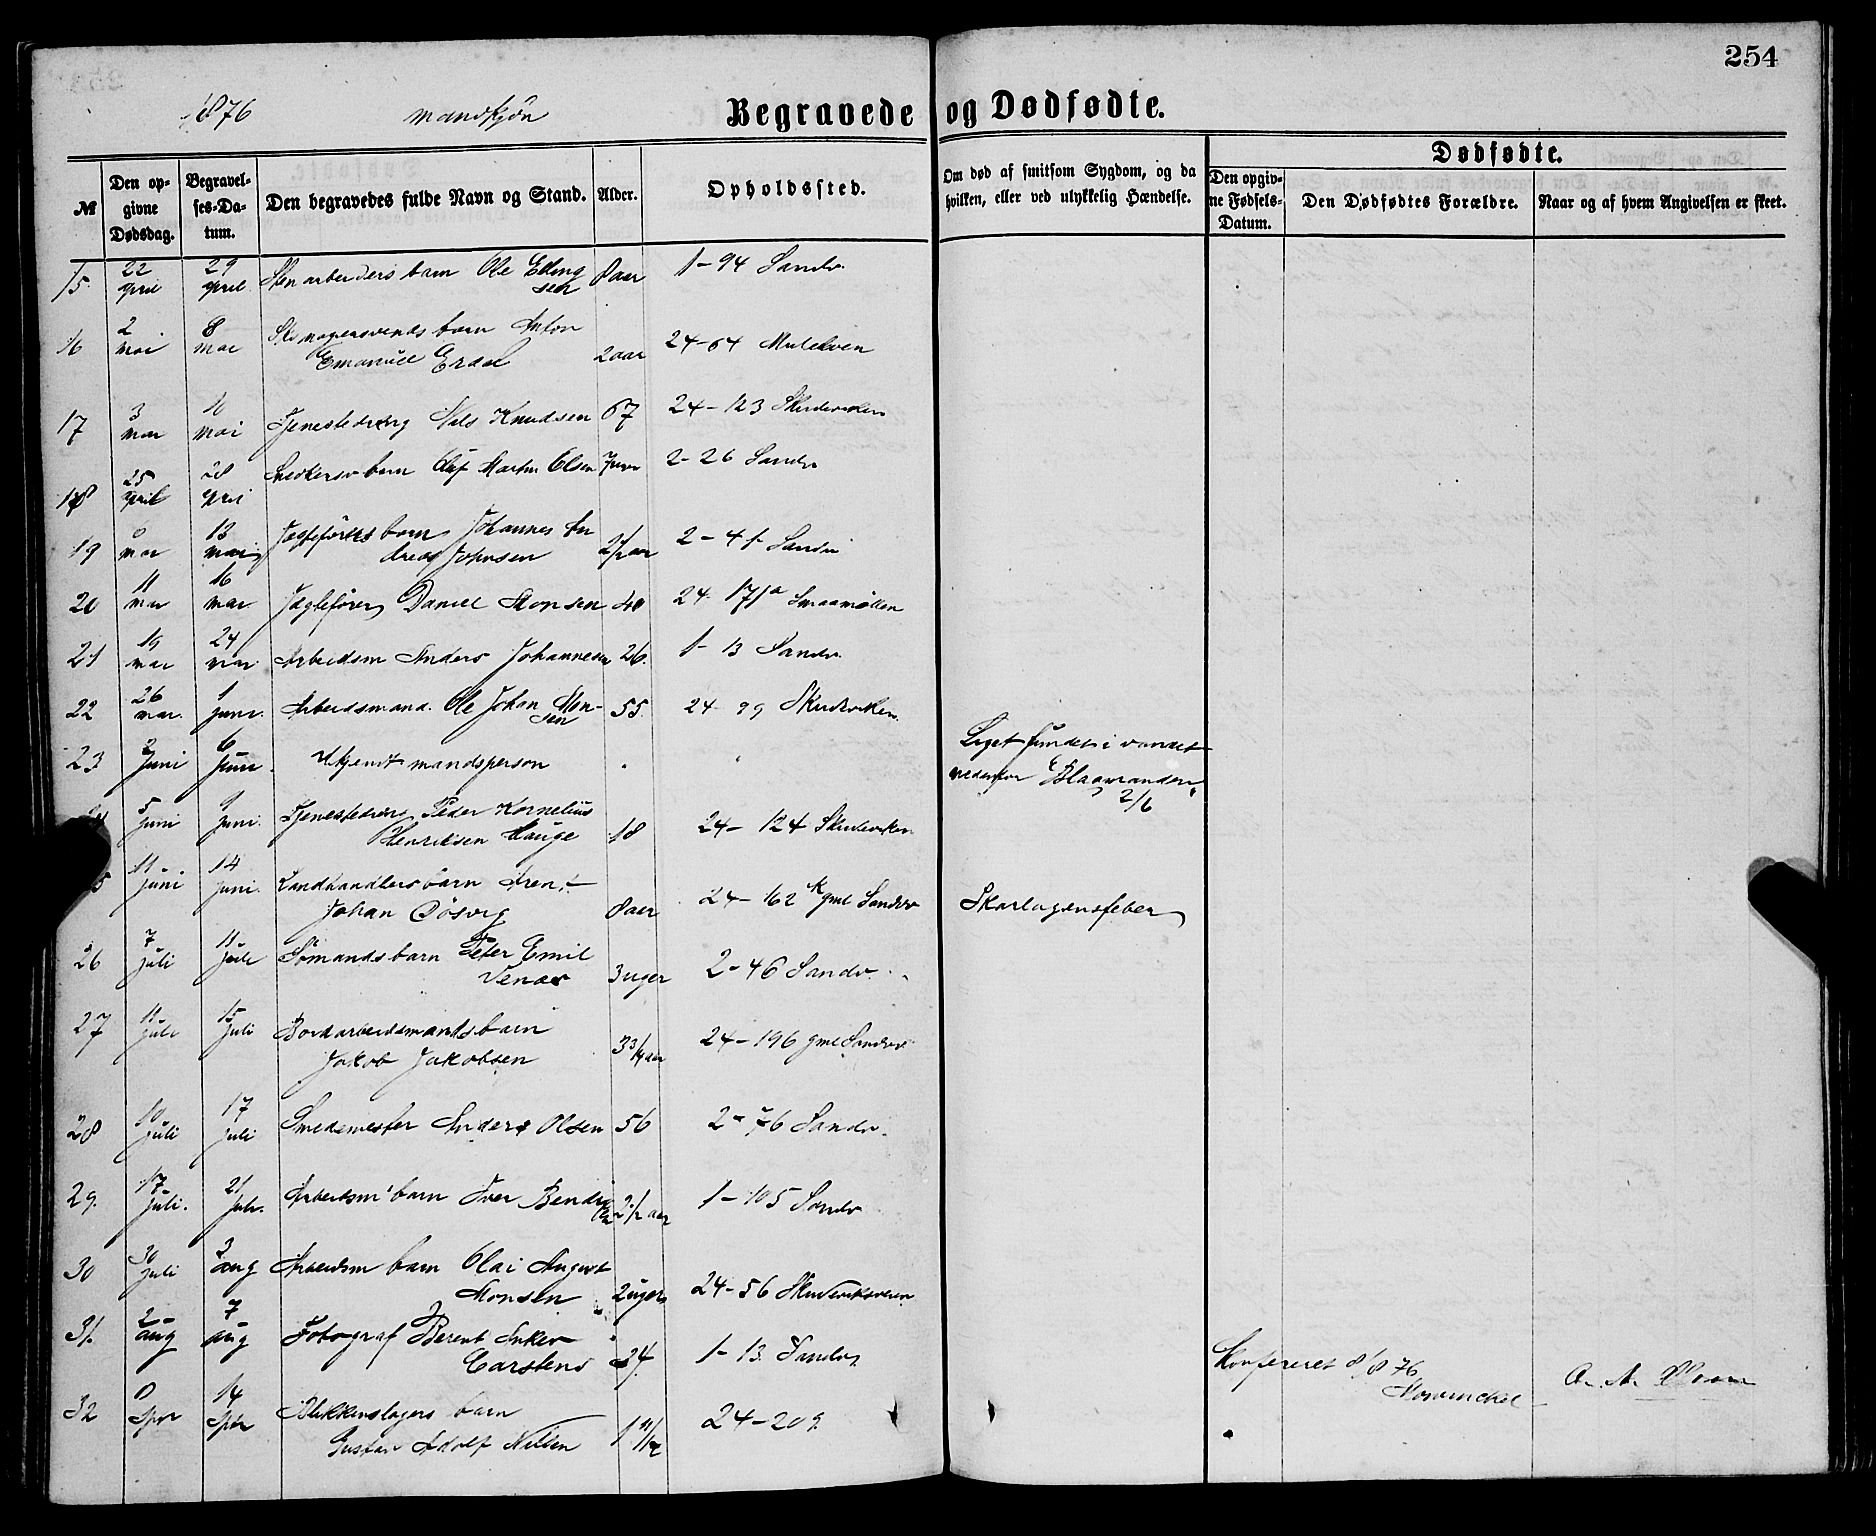 254
1876 mandkjøn Begravede og Dødfødte.
№ Den opgivne Dødsdag. Begravelses-Datum. Den begravedes fulde Navn og Stand. Alder. Opholdssted. Om død af smitsom Sygdom, og da hvilken, eller ved ulykkelig Hændelse. Dødfødte.
Den opgivne Fødsels-Datum. Den Dødfødtes Forældre. Naar og af hvem Angivelsen er skeet.
15 22 april 29 april Stenarbeiders barn Ole Elling 8 aar 1-94 Sandv.
sen
16 2 mai 8 mai Skomagersvends barn Anton
Emanuel Erdal 2 aar 24-64 Mulelven
17 3 mai 10 mai Tjenestedreng Nils Knudsen 67 24-123 Skudeviken
18 25 april 28 april Snedkersv barn Oluf Martin Olsen 2-26 Sandv
19 8 mai 13 mai Jægteførers barn Johannes An
dreas Johnsen 2 1/2 aar 2-41 Sandv
20 11 mai 16 mai Jægtefører Daniel Monsen 40 24-171a Smaamøllen
21 19 mai 24 mai Arbeidsm Anders Johannesen 26. 1-13 Sandv.
22 26 mai. 1 juni. Arbeidsmand. Ole Johan Mon- 55 24-99 Skudeviken.
sen
23 2 Juni 6 Juni. Ukjendt mandsperson . " Liget fundet i vandet
nedenfor Blaamanden
2/6
5 juni 9 juni. Tjenestedreng Peder Kornelius
Henriksen Hauge 18 24-124 Skudeviken
5 11 juni 14 juni. Landhandlers barn Arent
Johan Døsvig 8 aar 24-162 k gml Sandv Skarlagensfeber
26 7 juli 11 juli Sømands barn Peter Emil
Venaas 3 uger 2-46 Sandv.
27 11 juli 15 juli Bordarbeidsmands barn
Jakob Jakobsen 3 3/4 aar 24-196 gml Sandv
28 10 juli 17 juli Smedemester Anders Olsen 56 2-76 Sandv.
29. 17 juli. 21 juli. Arbeidsm' barn Iver Bendix
sen 2 1/2 aar 1-105 Sandv
30 30 juli 3 aug Arbeidsm barn Olai August
Monsen 2 uger 24-56 Skudeviksveien
31. 2 aug 7 aug Fotograf Berent Anker
Carstens 24 1-13. Sandv.
Konfereret 8/8 76
32 8 Spbr 14 Spbr Blikkenslagers barn
Gustav Adolf Nilsen 1 11/12 24-209.